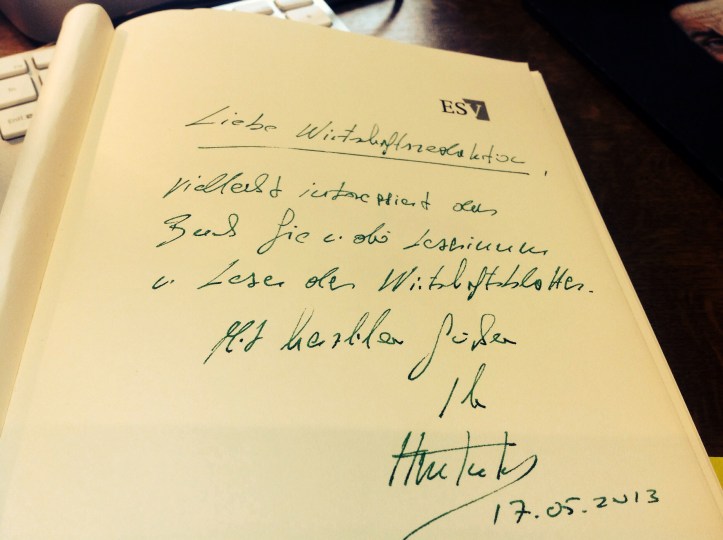 ESV
Liebe Wirtschaftsredaktion,
vielleicht interessiert das
Buch Sie u. die Leserinnen
u. Leser des Wirtschaftsblattes.
Mit herzlichen Grüßen
Ihr
17.05.2013